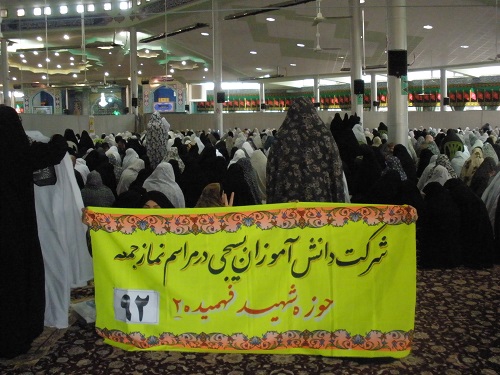 شرکت دانش آموزان بسیجی در مراسم نماز جمعه
حوزه شهید فهمیده ۲
۹۲